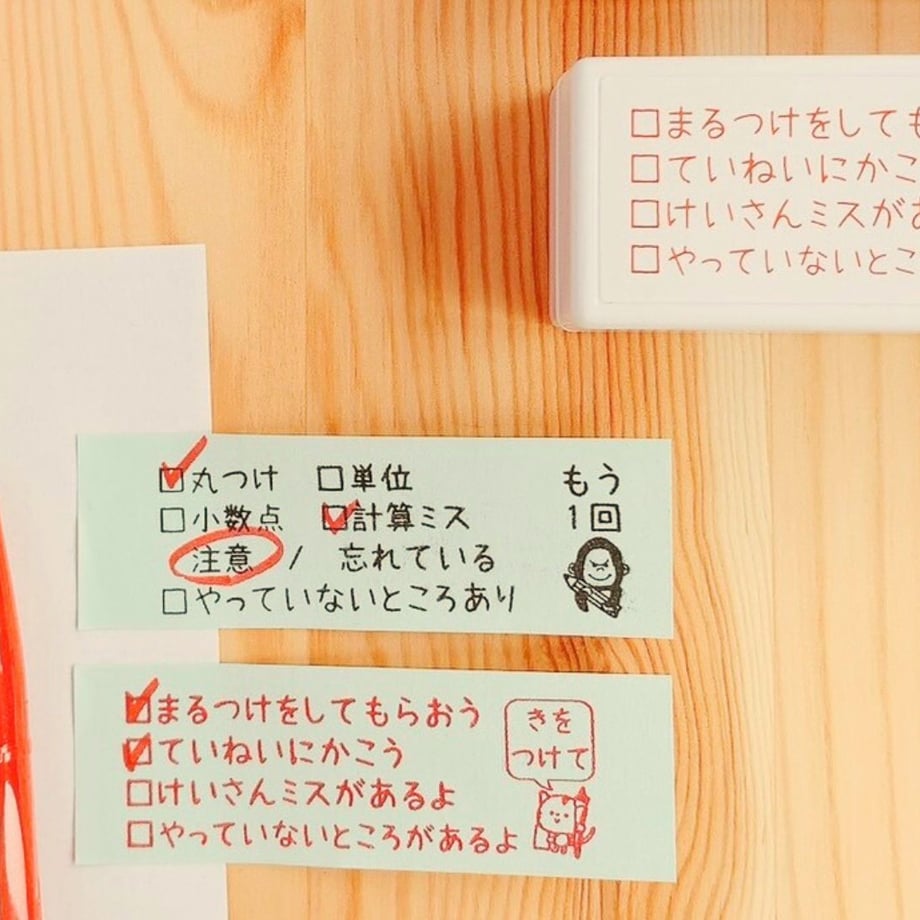 □まるつけをしても
□ていねいにかこ
□けいさんミスがあ
□やっていないとこ
☑丸つけ □単位
□小数点 ☑計算ミス
注意 / 忘れている
□やっていないところあり
もう
1回
☑まるつけをしてもらおう
☑ていねいにかこう
□けいさんミスがあるよ
□やっていないところがあるよ
きを
つけて